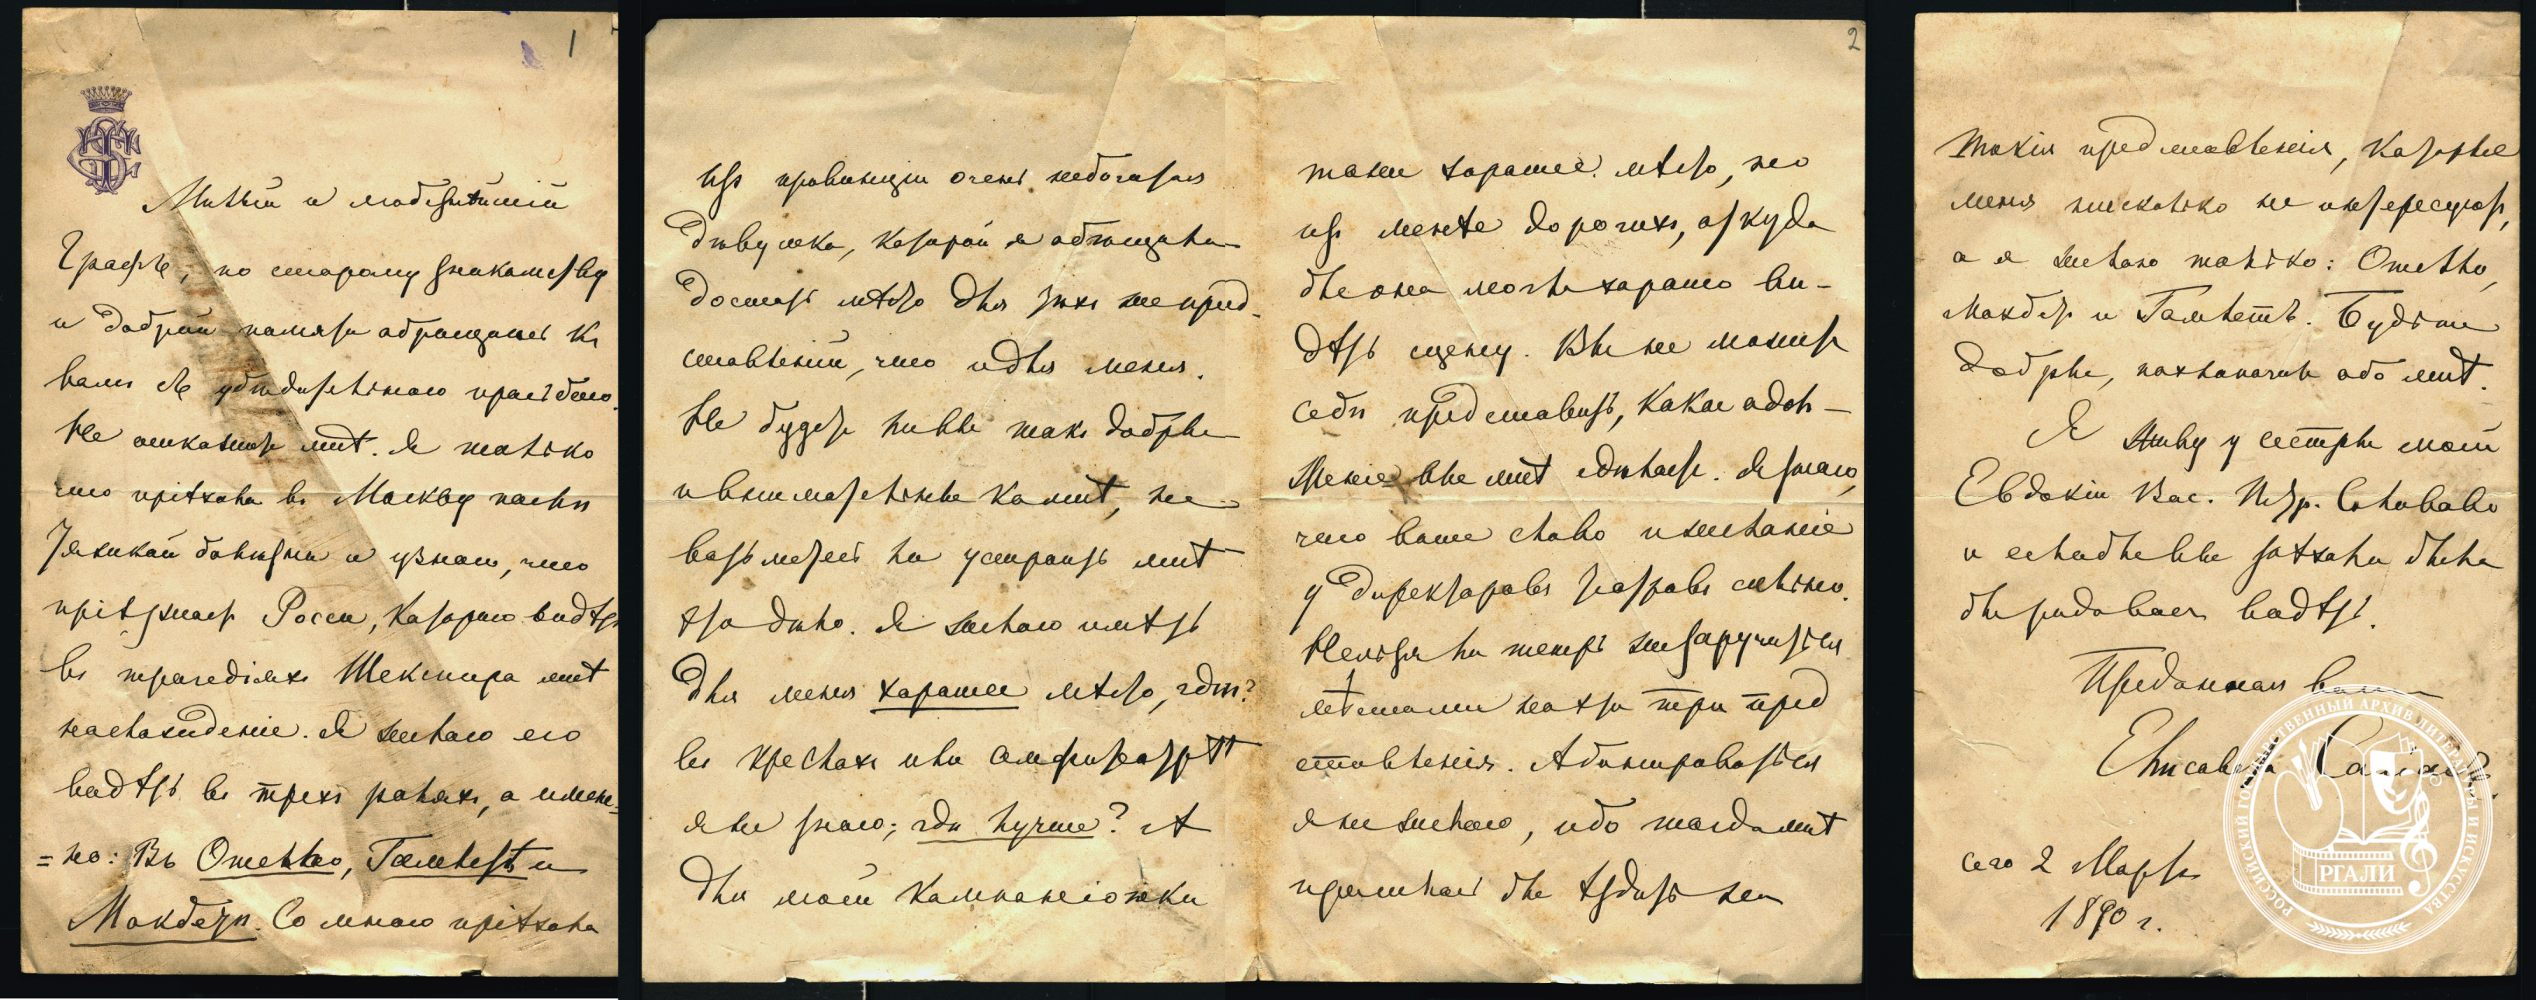 1
Милый и любезнѣйшій
Графъ, по старому знакомству
и доброй памяти обращаюсь къ
вамъ съ убѣдительною прозьбою.
Не откажите мнѣ. Я только
что пріѣхала въ Москву послѣ
тяжкой болѣзни и узнаю, что
пріѣзжаетъ Росси, котораго видѣть
въ трагедіяхъ Шекспира мнѣ
наслажденіе. Я желаю его
видѣть въ трехъ роляхъ, а имен-
=но: Въ Отелло, Гамлетѣ и
Макбетѣ. Со мною пріѣхала
2
изъ провинціи очень небогатая
дѣвушка, которой я обѣщала
достать мѣсто для тѣхъ же пред-
ставленій, что и для меня.
Не будете ли вы такъ добры
и внимательны ко мнѣ, не
возьметесь ли устроить мнѣ
это дѣло. Я желаю имѣть
для меня хорошее мѣсто, гдѣ?
въ креслахъ или амфитеатрѣ
я не знаю; гдѣ лучше? А
для моей компаніонки
тоже хорошее мѣсто, но
изъ менѣе дорогихъ, откуда
бы она могла хорошо ви-
дѣть сцену. Вы не можете
себѣ представить, какое одол-
женіе вы мнѣ сдѣлаете. Я знаю,
что ваше слово и желаніе
у директоровъ театровъ сильно.
Нельзя ли теперь же заручиться
мѣстами на эти три пред
ставленія. Абонироваться
я не желаю, ибо тогда мнѣ
пришлось бы ѣздить на
такія представленія, которые
меня нисколько не интересуютъ,
а я желаю только: Отелло,
Макбетъ и Гамлетъ. Будьте
добры, похлопочите обо мнѣ.
Я живу у сестры моей
Евдокіи Вас.
и если бы вы заѣхали была
бы рада васъ видѣть.
Преданная вамъ
Елисавета Саліасъ
сего 2 Марта
1890 г.
РОССИЙСКИЙ ГОСУДАРСТВЕННЫЙ АРХИВ ЛИТЕРАТУРЫ И ИСКУССТВА
РГАЛИ